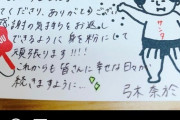 てくださり、ありがとうござ
謝の気持ちをお返し
できるように 身を粉にして
頑張ります!!!
これからも皆さんに幸せな日々が
続きますように…
弓木 奈於
サンタ